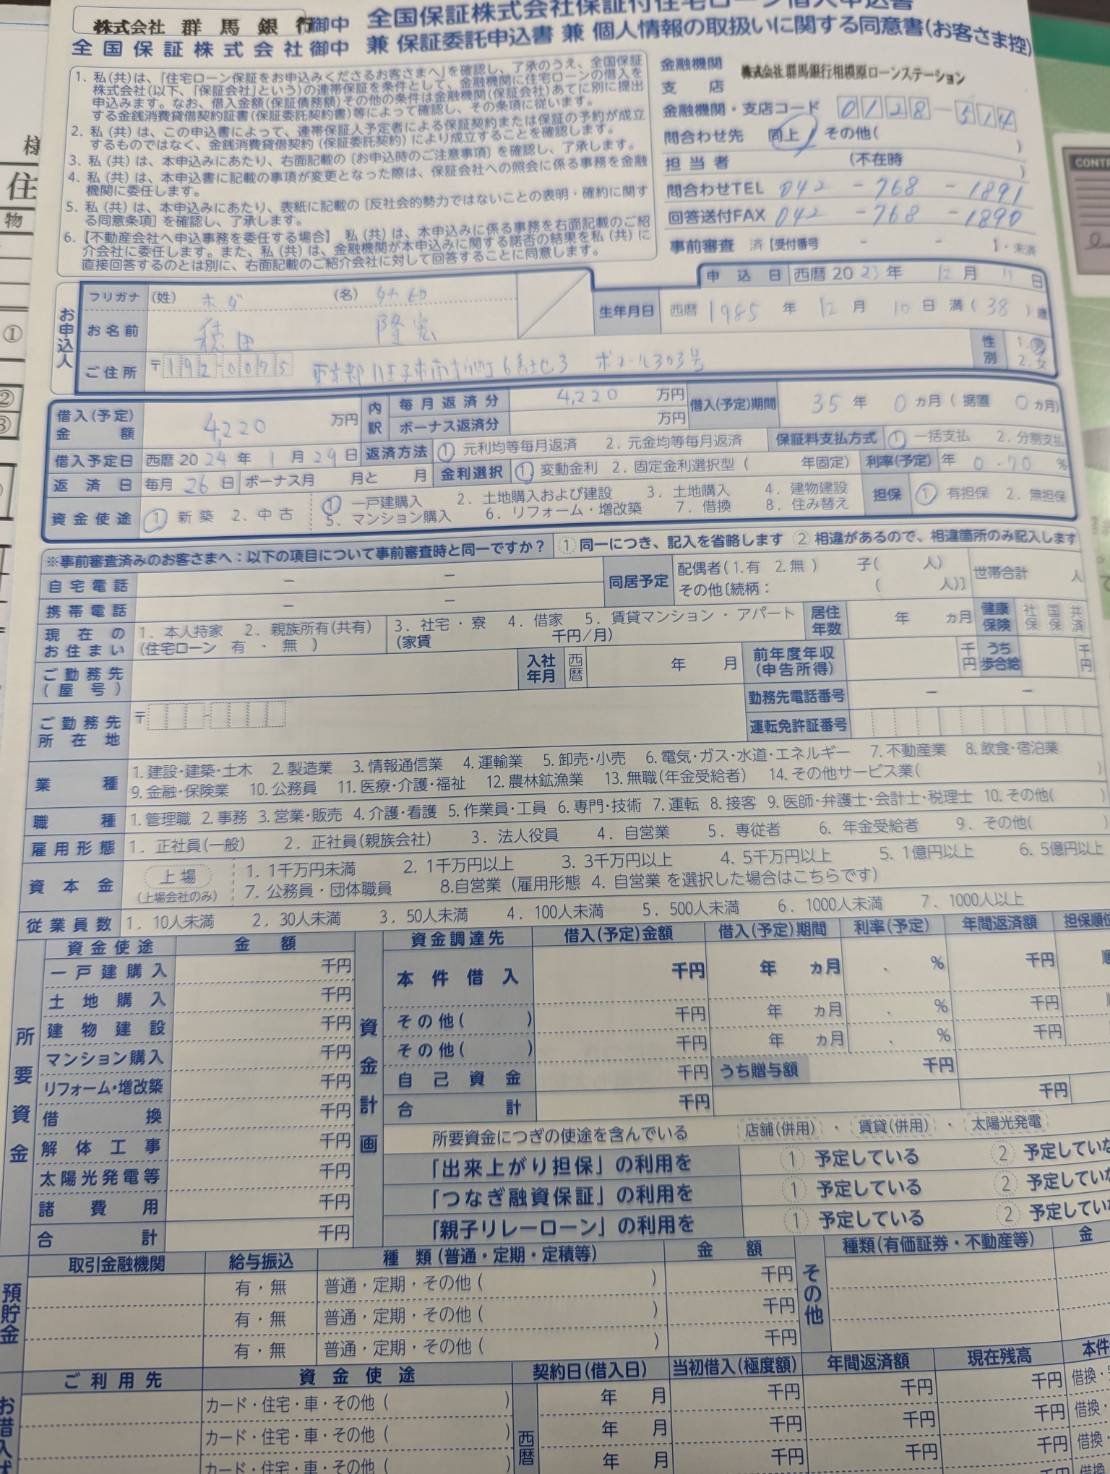 株式会社 群 馬 銀 行 御中 全国保証株式会社保証付住宅ローン借入申込書
全 国 保 証 株 式 会 社 御中 兼 保証委託申込書 兼 個人情報の取扱いに関する同意書(お客さま控)
1. 私(共)は、「住宅ローン保証をお申込みくださるお客さまへ」を確認し、了承のうえ、全国保証
株式会社(以下、「保証会社」という)の連帯保証を条件として、金融機関に住宅ローンの借入を
申込みます。なお、借入金額(保証債務額)その他の条件は金融機関(保証会社)あてに別に提出
する金銭消費貸借契約証書(保証委託契約書)等によって確認し、その条項に従います。
2. 私(共)は、この申込書によって、連帯保証人予定者による保証契約または保証の予約が成立
するものではなく、金銭消費貸借契約(保証委託契約)により成立することを確認します。
3. 私(共)は、本申込みにあたり、右面記載の〔お申込時のご注意事項〕を確認し、了承します。
4. 私(共)は、本申込書に記載の事項が変更となった際は、保証会社への照会に係る事務を金融
機関に委任します。
5. 私(共)は、本申込みにあたり、表紙に記載の[反社会的勢力ではないことの表明・確約に関す
る同意条項]を確認し、了承します。
6.【不動産会社へ申込事務を委任する場合】 私(共)は、本申込みに係る事務を右面記載のご紹
介会社に委任します。また、私(共)は、金融機関が本申込みに関する諾否の結果を私(共)に
直接回答するのとは別に、右面記載のご紹介会社に対して回答することに同意します。
金融機関 株式会社 群馬銀行相模原ローンステーション
支 店
金融機関・支店コード 0128-314
問合わせ先 同上 その他( )
担 当 者 (不在時 )
問合わせTEL 042 - 768 - 1891
回答送付FAX 042 - 768 - 1890
事前審査 済【受付番号 - - 】・未済
申 込 日 西暦 2023 年 12 月 日
お申込人
フリガナ (姓) ホダ (名)
お名前 穂田 隆宏
生年月日 西暦 1985 年 12 月 10 日 満( 38 )歳
ご住所 〒192-0075 東京都八王子市南新町6番地3 303号
性別 1.男 2.女
借入(予定)金額 4,220 万円 内訳 毎月返済分 4,220 万円 借入(予定)期間 35 年 0 カ月(据置 0 カ月)
ボーナス返済分 万円
借入予定日 西暦 2024 年 1 月 29 日 返済方法 1 元利均等毎月返済 2. 元金均等毎月返済 保証料支払方式 1 一括支払 2. 分割支払
返 済 日 毎月 26 日 ボーナス月 月と 月 金利選択 1 変動金利 2. 固定金利選択型( 年固定) 利率(予定) 年 0.70 %
資金使途 1 新築 2. 中古 1 一戸建購入 2. 土地購入および建設 3. 土地購入 4. 建物建設 担保 1 有担保 2. 無担保
5. マンション購入 6. リフォーム・増改築 7. 借換 8. 住み替え
※事前審査済みのお客さまへ:以下の項目について事前審査時と同一ですか? 1 同一につき、記入を省略します 2 相違があるので、相違箇所のみ記入します
自宅電話 - - 同居予定 配偶者(1. 有 2. 無) 子( 人) 世帯合計 人
携帯電話 - - その他〔続柄: ( 人)〕
現在のお住まい 1. 本人持家 2. 親族所有(共有) 3. 社宅・寮 4. 借家 5. 賃貸マンション・アパート 居住年数 年 カ月 健康保険 社保 国保 共済
(住宅ローン 有 ・ 無 ) (家賃 千円/月)
ご勤務先(屋号) 入社年月 西暦 年 月 前年度年収(申告所得) 千円 うち歩合給 千円
勤務先電話番号 - -
ご勤務先所在地 〒 運転免許証番号
業 種 1. 建設・建築・土木 2. 製造業 3. 情報通信業 4. 運輸業 5. 卸売・小売 6. 電気・ガス・水道・エネルギー 7. 不動産業 8. 飲食・宿泊業
9. 金融・保険業 10. 公務員 11. 医療・介護・福祉 12. 農林鉱漁業 13. 無職(年金受給者) 14. その他サービス業( )
職 種 1. 管理職 2. 事務 3. 営業・販売 4. 介護・看護 5. 作業員・工員 6. 専門・技術 7. 運転 8. 接客 9. 医師・弁護士・会計士・税理士 10. その他( )
雇用形態 1. 正社員(一般) 2. 正社員(親族会社) 3. 法人役員 4. 自営業 5. 専従者 6. 年金受給者 9. その他( )
資 本 金 上場 (上場会社のみ) 1. 1千万円未満 2. 1千万円以上 3. 3千万円以上 4. 5千万円以上 5. 1億円以上 6. 5億円以上
7. 公務員・団体職員 8. 自営業(雇用形態 4. 自営業 を選択した場合はこちらです)
従業員数 1. 10人未満 2. 30人未満 3. 50人未満 4. 100人未満 5. 500人未満 6. 1000人未満 7. 1000人以上
所要資金
資金使途 金 額
一戸建購入 千円
土地購入 千円
建物建設 千円
マンション購入 千円
リフォーム・増改築 千円
借 換 千円
解体工事 千円
太陽光発電等 千円
諸 費 用 千円
合 計 千円
資金計画
資金調達先 借入(予定)金額 借入(予定)期間 利率(予定) 年間返済額 担保順位
本 件 借 入 千円 年 カ月 . % 千円
その他( ) 千円 年 カ月 . % 千円
その他( ) 千円 年 カ月 . % 千円
自 己 資 金 千円 うち贈与額 千円
合 計 千円 千円
所要資金につぎの使途を含んでいる 店舗(併用) ・ 賃貸(併用) ・ 太陽光発電
「出来上がり担保」の利用を 1 予定している 2 予定していな
「つなぎ融資保証」の利用を 1 予定している 2 予定していな
「親子リレーローン」の利用を 1 予定している 2 予定してい
預貯金
取引金融機関 給与振込 種 類(普通・定期・定積等) 金 額 その他 種類(有価証券・不動産等) 金
有・無 普通・定期・その他( ) 千円
有・無 普通・定期・その他( ) 千円
有・無 普通・定期・その他( ) 千円
ご利用先 資金使途 契約日(借入日) 当初借入(極度額) 年間返済額 現在残高 本件
カード・住宅・車・その他( ) 西暦 年 月 千円 千円 千円 借換・
カード・住宅・車・その他( ) 年 月 千円 千円 千円 借換・
カード・住宅・車・その他( ) 年 月 千円 千円 千円 借換